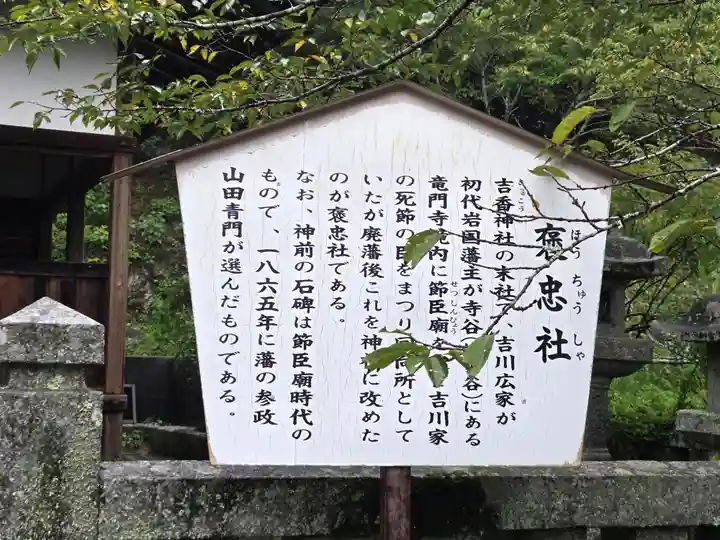 褒忠社
ほう ちゅう しゃ
吉香神社の末社で、吉川広家が
きっこう
初代岩国藩主が寺谷( 谷)にある
竜門寺境内に節臣廟を 吉川家
せつしんびょう
の死節の臣をまつり 同所として
いたが廃藩後これを神社に改めた
のが褒忠社である。
なお、神前の石碑は節臣廟時代の
もので、一八六五年に藩の参政
山田青門が選んだものである。